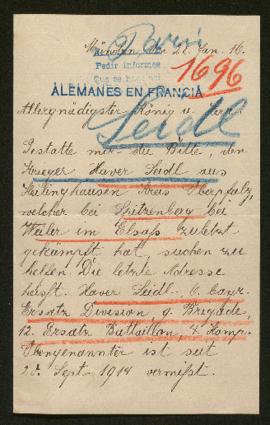 München, den 22. Jan. 16.
Pedir informes
1696
ALEMANES EN FRANCIA
Allergnädigster König u. Herr.
Seidl
Gestatte mir die Bitte, den
Krieger Xaver Seidl aus
Kreis Oberpfalz,
welcher bei Spitzenberg bei
Weiler im Elsaß zuletzt
gekämpft hat, suchen zu
helfen. Die letzte Adresse
heißt. Xaver Seidl 6. bayr.
Ersatz Division, 9. Brigade,
12. Ersatz Battaillon, 4. Komp.
Obengenannter ist seit
Sept. 1914 vermißt.